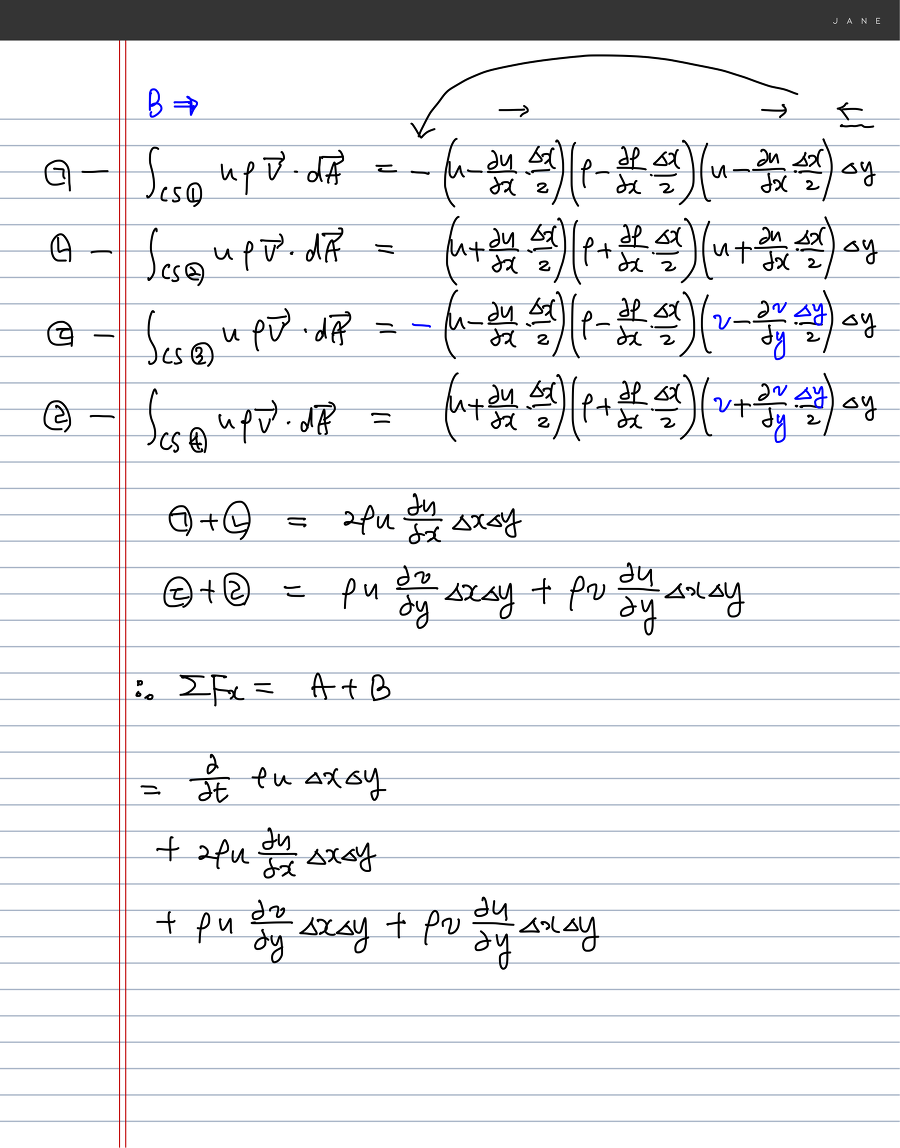 JANE
B ⇒
→ → ←
㉠ — ∫_CS① uρV⃗·dA⃗ = −(u−∂u/∂x·Δx/2)(ρ−∂ρ/∂x·Δx/2)(u−∂u/∂x·Δx/2)Δy
㉡ — ∫_CS② uρV⃗·dA⃗ = (u+∂u/∂x·Δx/2)(ρ+∂ρ/∂x·Δx/2)(u+∂u/∂x·Δx/2)Δy
㉢ — ∫_CS③ uρV⃗·dA⃗ = −(u−∂u/∂x·Δx/2)(ρ−∂ρ/∂x·Δx/2)(v−∂v/∂y·Δy/2)Δy
㉣ — ∫_CS④ uρV⃗·dA⃗ = (u+∂u/∂x·Δx/2)(ρ+∂ρ/∂x·Δx/2)(v+∂v/∂y·Δy/2)Δy
㉠+㉡ = 2ρu ∂u/∂x ΔxΔy
㉢+㉣ = ρu ∂v/∂y ΔxΔy + ρv ∂u/∂y ΔxΔy
∴ ΣFx = A+B
= ∂/∂t ρu ΔxΔy
+ 2ρu ∂u/∂x ΔxΔy
+ ρu ∂v/∂y ΔxΔy + ρv ∂u/∂y ΔxΔy